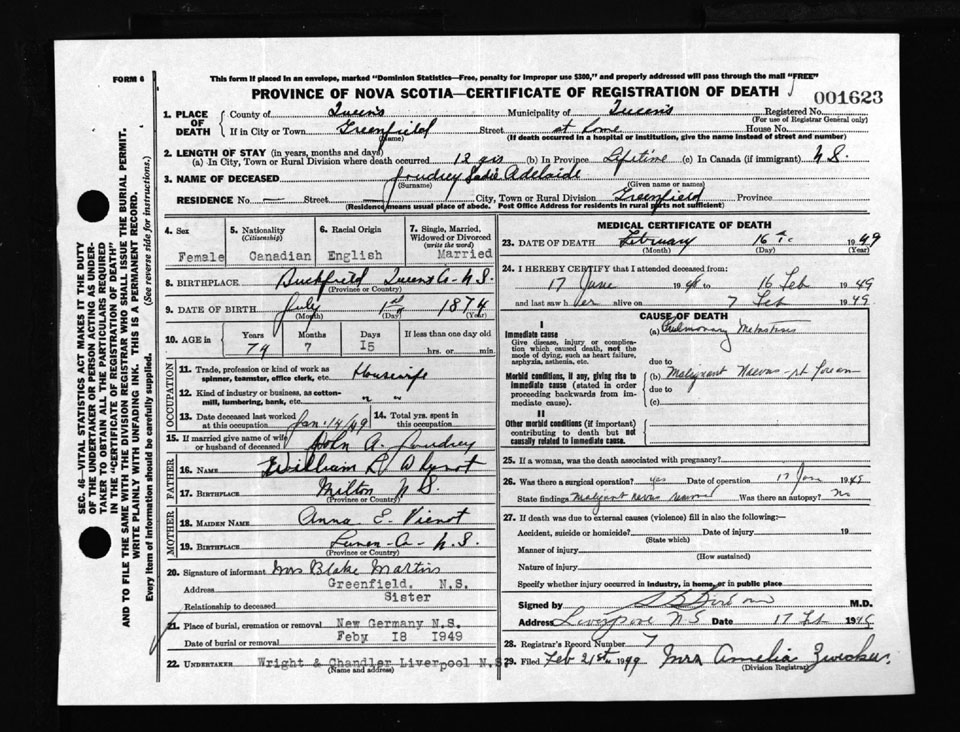 FORM 6
This form if placed in an envelope, marked "Dominion Statistics—Free, penalty for improper use $300," and properly addressed will pass through the mail "FREE"
PROVINCE OF NOVA SCOTIA—CERTIFICATE OF REGISTRATION OF DEATH
001623
1. PLACE OF DEATH
County of Queens Municipality of Queens Registered No.
(For use of Registrar General only)
If in City or Town Greenfield Street at home House No.
(Name) (If death occurred in a hospital or institution, give the name instead of street and number)
2. LENGTH OF STAY (in years, months and days)
(a) In City, Town or Rural Division where death occurred 12 yrs (b) In Province Lifetime (c) In Canada (if immigrant) N.S.
3. NAME OF DECEASED Joudrey Sadie Adelaide
(Surname) (Given name or names)
RESIDENCE No — Street — City, Town or Rural Division Greenfield Province
(Residence means usual place of abode. Post Office Address for residents in rural parts not sufficient)
4. Sex
Female
5. Nationality
(Citizenship)
Canadian
6. Racial Origin
English
7. Single, Married, Widowed or Divorced
(write the word)
Married
8. BIRTHPLACE Buckfield Queens Co. N.S.
(Province or Country)
9. DATE OF BIRTH July 1st 1874
(Month) (Day) (Year)
10. AGE in
Years Months Days If less than one day old
74 7 15 hrs. or min.
OCCUPATION
11. Trade, profession or kind of work as spinner, teamster, office clerk, etc. Housewife
12. Kind of industry or business, as cotton-mill, lumbering, bank, etc. " "
13. Date deceased last worked at this occupation Jan. 14/49
14. Total yrs. spent in this occupation
15. If married give name of wife or husband of deceased John A. Joudrey
FATHER
16. NAME William L. Whynot
17. BIRTHPLACE Milton N S.
(Province or Country)
MOTHER
18. MAIDEN NAME Anna E. Vienot
19. BIRTHPLACE Lunen-Co- N.S.
(Province or Country)
20. Signature of informant Mrs Blake Martin
Address Greenfield. N.S.
Relationship to deceased Sister
21. Place of burial, cremation or removal New Germany N.S.
Date of burial or removal Feby 18 1949
22. UNDERTAKER Wright & Chandler Liverpool N.S.
(Name and address)
MEDICAL CERTIFICATE OF DEATH
23. DATE OF DEATH February 16th 1949
(Month) (Day) (Year)
24. I HEREBY CERTIFY that I attended deceased from:
17 June 1948 to 16 Feb 1949
and last saw her alive on 7 Feb 1949.
CAUSE OF DEATH
I
Immediate cause
Give disease, injury or complication which caused death, not the mode of dying, such as heart failure, asphyxia, asthenia, etc.
(a) Pulmonary Metastases
due to
Morbid conditions, if any, giving rise to immediate cause (stated in order proceeding backwards from immediate cause).
(b) Malignant Naevus - rt forearm
due to
(c)
II
Other morbid conditions (if important) contributing to death but not causally related to immediate cause.
25. If a woman, was the death associated with pregnancy?
26. Was there a surgical operation? yes Date of operation 17 June 1948
State findings Malignant nevus removed Was there an autopsy? No
27. If death was due to external causes (violence) fill in also the following:—
Accident, suicide or homicide? Date of injury 19
(State which)
Manner of injury
(How sustained)
Nature of injury
Specify whether injury occurred in industry, in home, or in public place
Signed by M.D.
Address Liverpool N S Date 17 Feb 1949
28. Registrar's Record Number 7
29. Filed Feb 21st 1949 Mrs Amelia Zwicker.
(Division Registrar)
SEC. 46—VITAL STATISTICS ACT MAKES IT THE DUTY
OF THE UNDERTAKER OR PERSON ACTING AS UNDER-
TAKER TO OBTAIN ALL THE PARTICULARS REQUIRED
IN THE "CERTIFICATE OF REGISTRATION OF DEATH"
AND TO FILE THE SAME WITH THE DIVISION REGISTRAR WHO SHALL ISSUE THE BURIAL PERMIT.
WRITE PLAINLY WITH UNFADING INK. THIS IS A PERMANENT RECORD.
Every item of information should be carefully supplied. (See reverse side for instructions.)